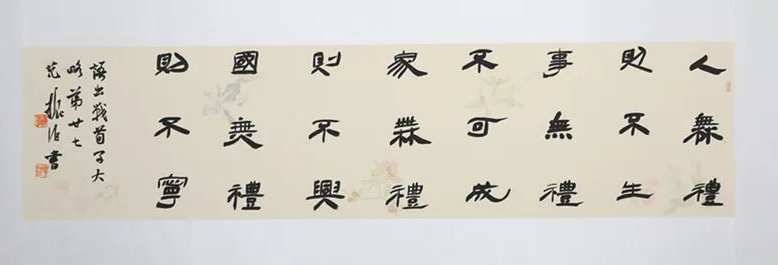 人無禮
則不生
事無禮
不可成
家無禮
則不興
國無禮
則不寧
語出戰荀子大
略第廿七
范振書